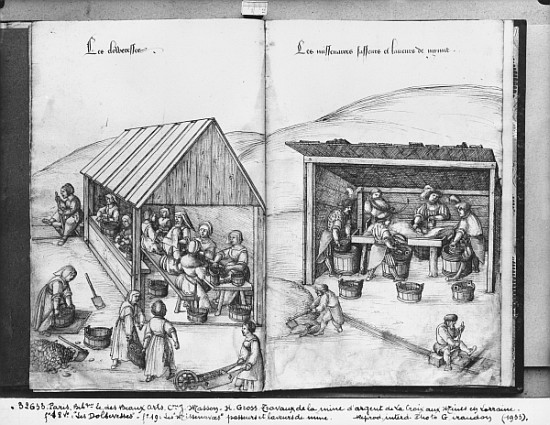 Les dolveresses
Les nettenaires passeurs et laveurs de myne
. 32633. Paris. Bibl. de des Beaux Arts. Con J. Masson. H. Gross Travaux de la mine d'argent de La Croix aux Mines en Lorraine.
f° 18 v°. "Les Dolveresses" - f° 19. passeurs et laveurs de mine. Reprod. interd. Photo G. Giraudon (1933).